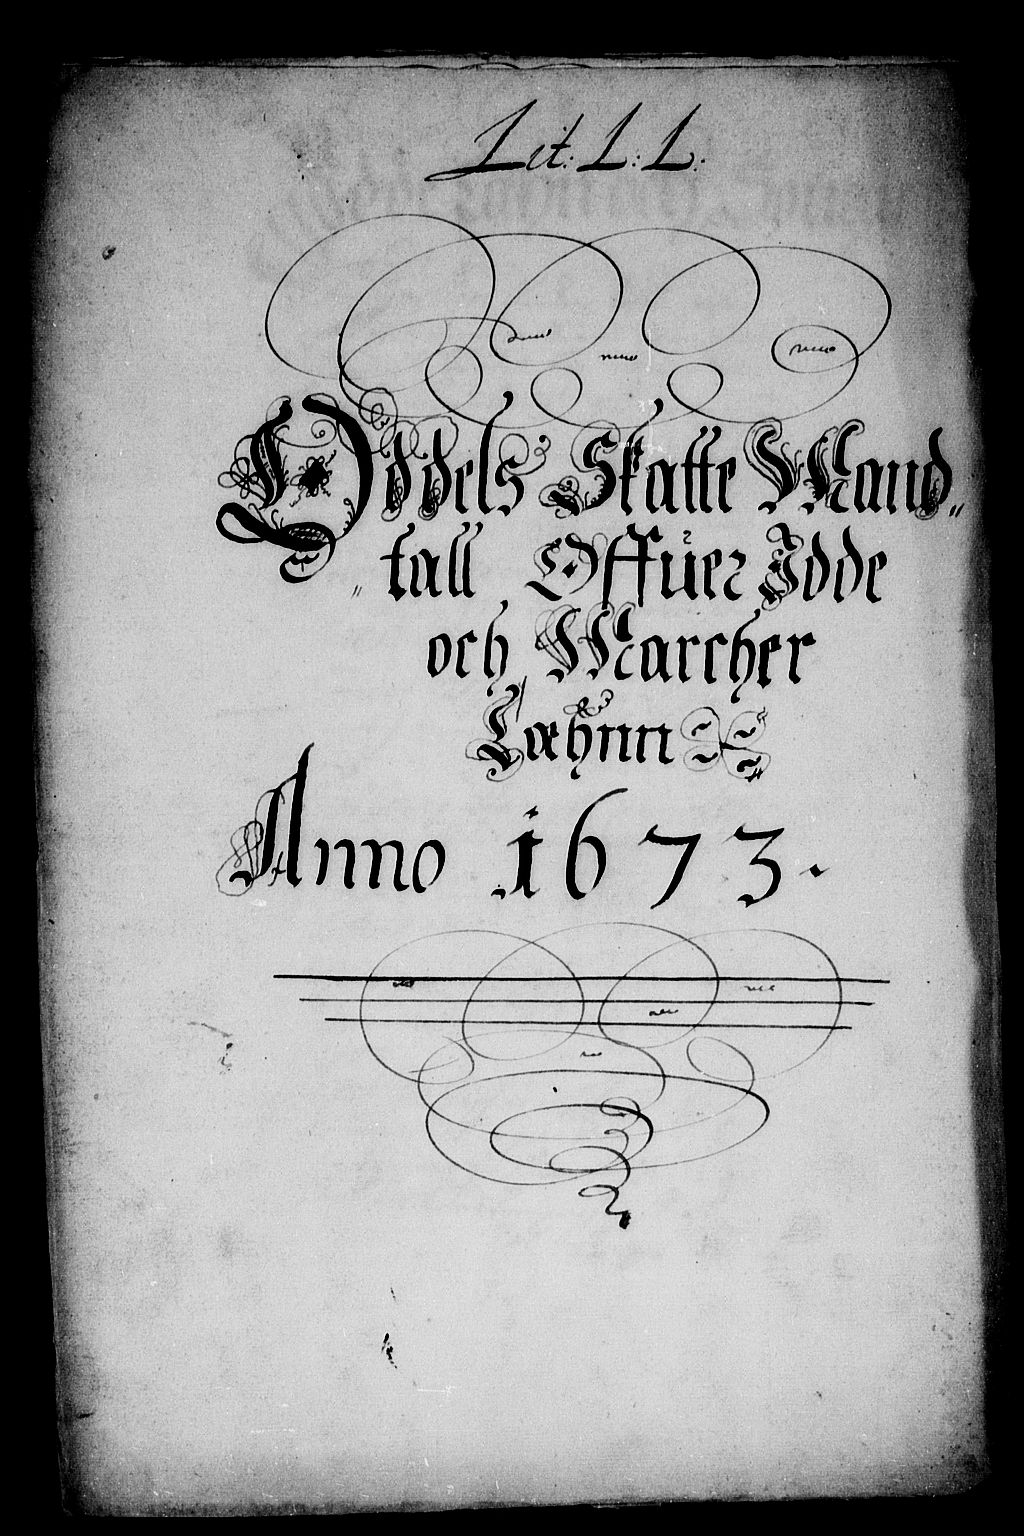 Lit: L: L:
Oddels Skatte Mand„
„tall Offüer Idde
och Marcher
Læhnn
Anno 1673.